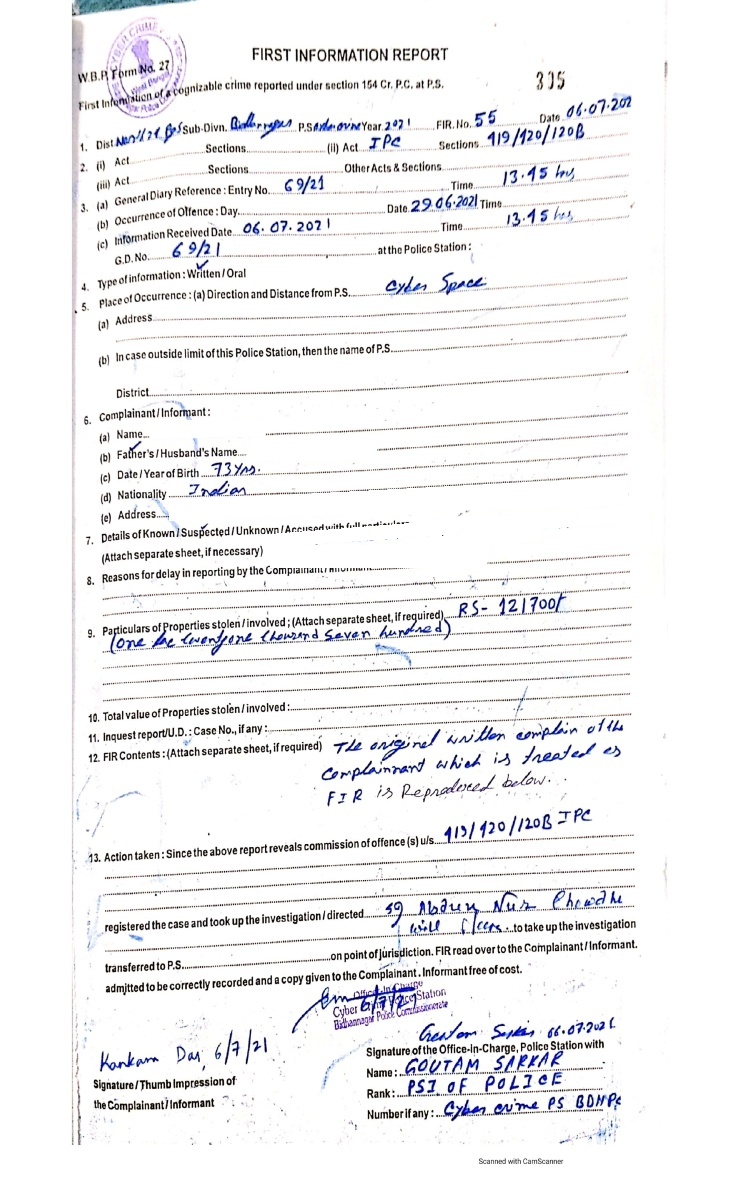 CYBER CRIME
West Bengal
FIRST INFORMATION REPORT
W.B.P. Form No. 27
335
First Information of a cognizable crime reported under section 154 Cr. P.C. at P.S.
1. Dist North 24 Pgs Sub-Divn. Bidhannagar P.S. Year 2021 FIR. No. 55 Date 06.07.202
2. (i) Act Sections (ii) Act IPC Sections 419/420/120B
(iii) Act Sections Other Acts & Sections
3. (a) General Diary Reference : Entry No. 69/21 Time 13.45 hrs
(b) Occurrence of Offence : Day Date 29.06.2021 Time
(c) Information Received Date 06.07.2021 Time 13.45 hrs
G.D. No. 69/21 at the Police Station :
4. Type of information : Written / Oral
5. Place of Occurrence : (a) Direction and Distance from P.S. Cyber Space
(a) Address
(b) In case outside limit of this Police Station, then the name of P.S.
District
6. Complainant / Informant :
(a) Name
(b) Father's / Husband's Name
(c) Date / Year of Birth 73 Yrs.
(d) Nationality Indian
(e) Address
7. Details of Known / Suspected / Unknown / Accused with full particulars
(Attach separate sheet, if necessary)
8. Reasons for delay in reporting by the Complainant / Informant
9. Particulars of Properties stolen / involved ; (Attach separate sheet, if required) RS- 121700/
(one lac twentyone thousand seven hundred)
10. Total value of Properties stolen / involved :
11. Inquest report / U.D. : Case No., if any :
12. FIR Contents : (Attach separate sheet, if required) The original written complain of the
complainant which is treated as
FIR is Reproduced below.
13. Action taken : Since the above report reveals commission of offence (s) u/s. 419/420/120B IPC
registered the case and took up the investigation / directed SI Abdun Nur Chowdhu
to take up the investigation
transferred to P.S. on point of jurisdiction. FIR read over to the Complainant / Informant.
admitted to be correctly recorded and a copy given to the Complainant . Informant free of cost.
Officer-In-Charge
6/7/21
Cyber Crime Police Station
Bidhannagar Police Commissionerate
Goutam Sarkar 06.07.2021
Kankana Das, 6/7/21
Signature of the Office-In-Charge, Police Station with
Name : GOUTAM SARKAR
Signature / Thumb Impression of
Rank : PSI OF POLICE
the Complainant / Informant
Number if any : Cyber crime PS BDNPC
Scanned with CamScanner